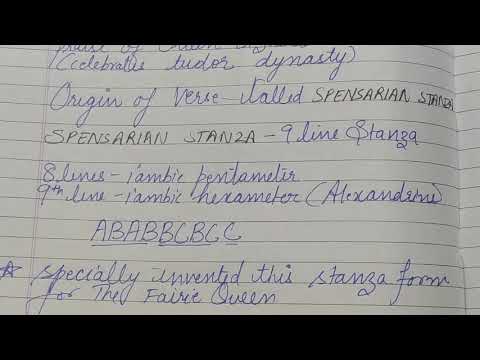 praise of Queen
(celebrates tudor dynasty)
Origin of Verse - Called SPENSARIAN STANZA
SPENSARIAN STANZA - 9 line Stanza
8 lines - iambic pentametir
9th line - iambic hexameter (Alexandrine)
ABABBCBCC
☆ specially invented this stanza form
for The Fairie Queen